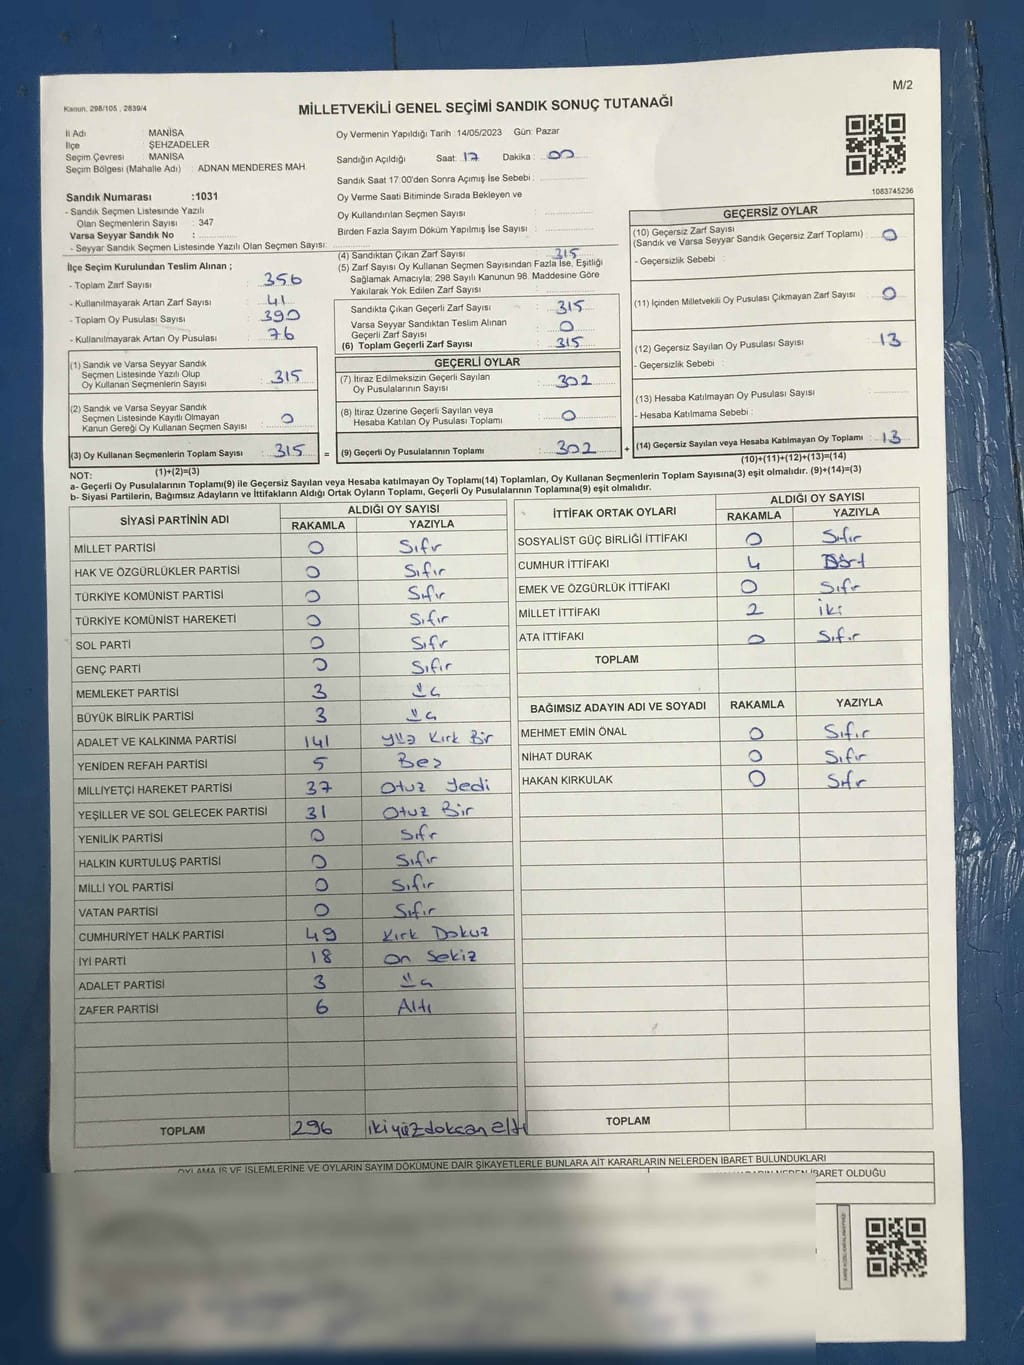 M/2
Kanun. 298/105 , 2839/4
MİLLETVEKİLİ GENEL SEÇİMİ SANDIK SONUÇ TUTANAĞI
İl Adı : MANİSA
İlçe : ŞEHZADELER
Seçim Çevresi : MANİSA
Seçim Bölgesi (Mahalle Adı) : ADNAN MENDERES MAH
Sandık Numarası :1031
- Sandık Seçmen Listesinde Yazılı
Olan Seçmenlerin Sayısı : 347
Varsa Seyyar Sandık No :
- Seyyar Sandık Seçmen Listesinde Yazılı Olan Seçmen Sayısı:
Oy Vermenin Yapıldığı Tarih :14/05/2023 Gün: Pazar
Sandığın Açıldığı Saat: 17 Dakika : 00
Sandık Saat 17.00'den Sonra Açımış İse Sebebi :
Oy Verme Saati Bitiminde Sırada Bekleyen ve
Oy Kullandırılan Seçmen Sayısı :
Birden Fazla Sayım Döküm Yapılmış İse Sayısı :
1083745236
İlçe Seçim Kurulundan Teslim Alınan ;
- Toplam Zarf Sayısı : 356
- Kullanılmayarak Artan Zarf Sayısı : 41
- Toplam Oy Pusulası Sayısı : 390
- Kullanılmayarak Artan Oy Pusulası : 76
(1) Sandık ve Varsa Seyyar Sandık
Seçmen Listesinde Yazılı Olup
Oy Kullanan Seçmenlerin Sayısı : 315
(2) Sandık ve Varsa Seyyar Sandık
Seçmen Listesinde Kayıtlı Olmayan
Kanun Gereği Oy Kullanan Seçmen Sayısı : 0
(3) Oy Kullanan Seçmenlerin Toplam Sayısı : 315
(1)+(2)=(3)
(4) Sandıktan Çıkan Zarf Sayısı : 315
(5) Zarf Sayısı Oy Kullanan Seçmen Sayısından Fazla İse, Eşitliği
Sağlamak Amacıyla; 298 Sayılı Kanunun 98. Maddesine Göre
Yakılarak Yok Edilen Zarf Sayısı :
Sandıkta Çıkan Geçerli Zarf Sayısı : 315
Varsa Seyyar Sandıktan Teslim Alınan
Geçerli Zarf Sayısı : 0
(6) Toplam Geçerli Zarf Sayısı : 315
GEÇERLİ OYLAR
(7) İtiraz Edilmeksizin Geçerli Sayılan
Oy Pusulalarının Sayısı : 302
(8) İtiraz Üzerine Geçerli Sayılan veya
Hesaba Katılan Oy Pusulası Toplamı : 0
= (9) Geçerli Oy Pusulalarının Toplamı : 302 +
GEÇERSİZ OYLAR
(10) Geçersiz Zarf Sayısı
(Sandık ve Varsa Seyyar Sandık Geçersiz Zarf Toplamı) : 0
- Geçersizlik Sebebi :
(11) İçinden Milletvekili Oy Pusulası Çıkmayan Zarf Sayısı : 0
(12) Geçersiz Sayılan Oy Pusulası Sayısı : 13
- Geçersizlik Sebebi :
(13) Hesaba Katılmayan Oy Pusulası Sayısı :
- Hesaba Katılmama Sebebi :
(14) Geçersiz Sayılan veya Hesaba Katılmayan Oy Toplamı : 13
(10)+(11)+(12)+(13)=(14)
NOT:
a- Geçerli Oy Pusulalarının Toplamı(9) ile Geçersiz Sayılan veya Hesaba katılmayan Oy Toplamı(14) Toplamları, Oy Kullanan Seçmenlerin Toplam Sayısına(3) eşit olmalıdır. (9)+(14)=(3)
b- Siyasi Partilerin, Bağımsız Adayların ve İttifakların Aldığı Ortak Oyların Toplamı, Geçerli Oy Pusulalarının Toplamına(9) eşit olmalıdır.
SİYASİ PARTİNİN ADI ALDIĞI OY SAYISI
RAKAMLA YAZIYLA
MİLLET PARTİSİ 0 Sıfır
HAK VE ÖZGÜRLÜKLER PARTİSİ 0 Sıfır
TÜRKİYE KOMÜNİST PARTİSİ 0 Sıfır
TÜRKİYE KOMÜNİST HAREKETİ 0 Sıfır
SOL PARTİ 0 Sıfır
GENÇ PARTİ 0 Sıfır
MEMLEKET PARTİSİ 3 Üç
BÜYÜK BİRLİK PARTİSİ 3 Üç
ADALET VE KALKINMA PARTİSİ 141 Yüz Kırk Bir
YENİDEN REFAH PARTİSİ 5 Beş
MİLLİYETÇİ HAREKET PARTİSİ 37 Otuz Yedi
YEŞİLLER VE SOL GELECEK PARTİSİ 31 Otuz Bir
YENİLİK PARTİSİ 0 Sıfır
HALKIN KURTULUŞ PARTİSİ 0 Sıfır
MİLLİ YOL PARTİSİ 0 Sıfır
VATAN PARTİSİ 0 Sıfır
CUMHURİYET HALK PARTİSİ 49 Kırk Dokuz
İYİ PARTİ 18 On Sekiz
ADALET PARTİSİ 3 Üç
ZAFER PARTİSİ 6 Altı
TOPLAM 296 ikiyüzdoksanaltı
İTTİFAK ORTAK OYLARI ALDIĞI OY SAYISI
RAKAMLA YAZIYLA
SOSYALİST GÜÇ BİRLİĞİ İTTİFAKI 0 Sıfır
CUMHUR İTTİFAKI 4 Dört
EMEK VE ÖZGÜRLÜK İTTİFAKI 0 Sıfır
MİLLET İTTİFAKI 2 iki
ATA İTTİFAKI 0 Sıfır
TOPLAM
BAĞIMSIZ ADAYIN ADI VE SOYADI RAKAMLA YAZIYLA
MEHMET EMİN ÖNAL 0 Sıfır
NİHAT DURAK 0 Sıfır
HAKAN KIRKULAK 0 Sıfır
TOPLAM
OYLAMA İŞ VE İŞLEMLERİNE VE OYLARIN SAYIM DÖKÜMÜNE DAİR ŞİKAYETLERLE BUNLARA AİT KARARLARIN NELERDEN İBARET BULUNDUKLARI
NEDEN İBARET OLDUĞU